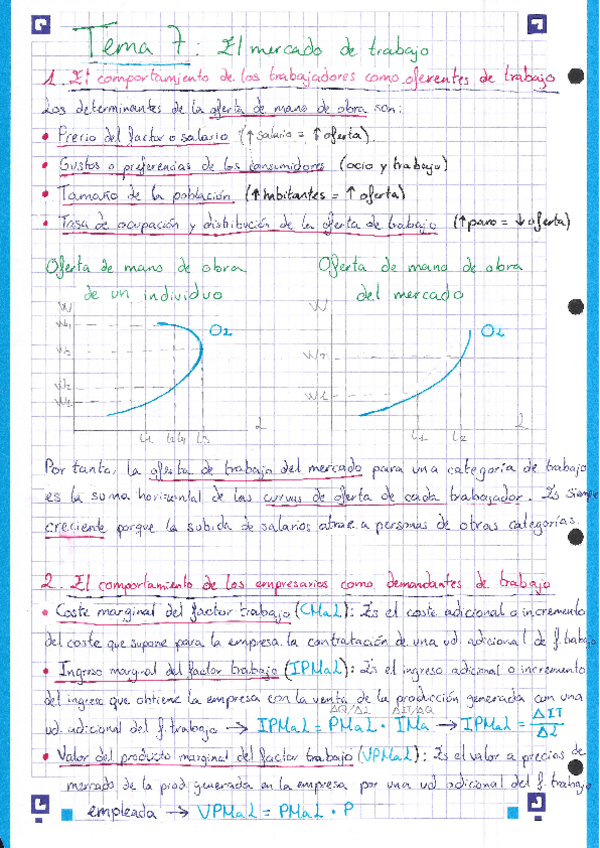 Tema 7: El mercado de trabajo
1. El comportamiento de los trabajadores como oferentes de trabajo
Los determinantes de la oferta de mano de obra son:
• Precio del factor o salario (↑ salario = ↑ oferta).
• Gustos o preferencias de los consumidores (ocio y trabajo)
• Tamaño de la población (↑ habitantes = ↑ oferta)
• Tasa de ocupación y distribución de la oferta de trabajo (↑ paro = ↓ oferta)
Oferta de mano de obra
de un individuo
W
W4
W3
W2
OL
L1 L2 L4 L3
L
Oferta de mano de obra
del mercado
W
OL
L1 L2
L
Por tanto, la oferta de trabajo del mercado para una categoría de trabajo
es la suma horizontal de las curvas de oferta de cada trabajador. Es siempre
creciente porque la subida de salarios atrae a personas de otras categorías.
2. El comportamiento de los empresarios como demandantes de trabajo
• Coste marginal del factor trabajo (CMaL): Es el coste adicional o incremento
del coste que supone para la empresa la contratación de una ud. adicional de f. trabajo
• Ingreso marginal del factor trabajo (IPMaL): Es el ingreso adicional o incremento
del ingreso que obtiene la empresa con la venta de la producción generada con una
ΔQ/ΔL ΔIT/ΔQ
ud. adicional del f. trabajo → IPMaL = PMaL · IMa → IPMaL = ΔIT/ΔL
• Valor del producto marginal del factor trabajo (VPMaL): Es el valor a precios de
mercado de la prod. generada en la empresa por una ud adicional del f. trabajo
empleada → VPMaL = PMaL · P